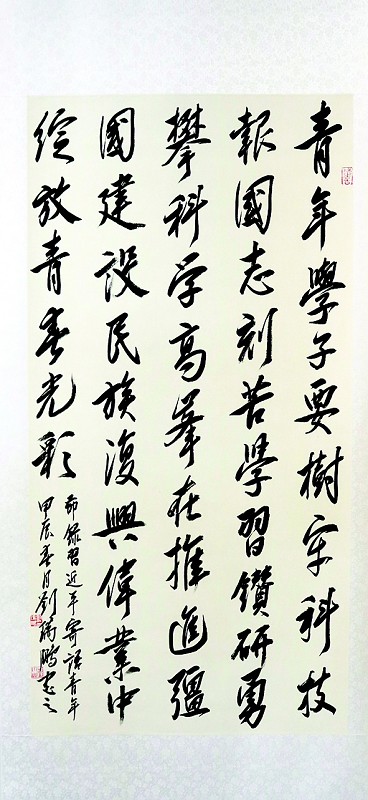 青年學子要樹牢科技
報國志刻苦學習鑽研勇
攀科学高峯在推進彊
國建设民族復興偉業中
綻放青春光彩
節錄習近平寄语青年
甲辰春月劉瑞鵬書之